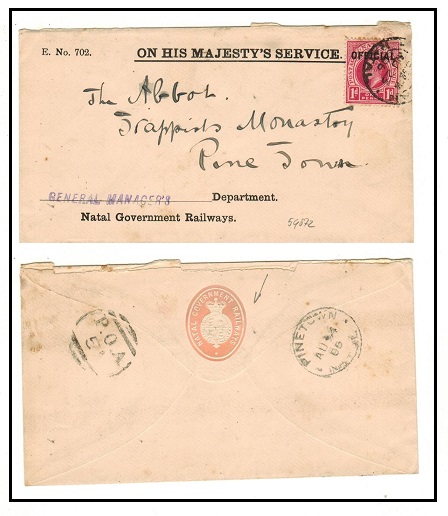 E. No. 702.
ON HIS MAJESTY'S SERVICE.
OFFICIAL
1d 1d
The Abbot
Trappists Monastry
Pine Town
GENERAL MANAGER'S Department.
Natal Government Railways.
59872
P.O.A
NATAL GOVERNMENT RAILWAYS
PINETOWN
AU